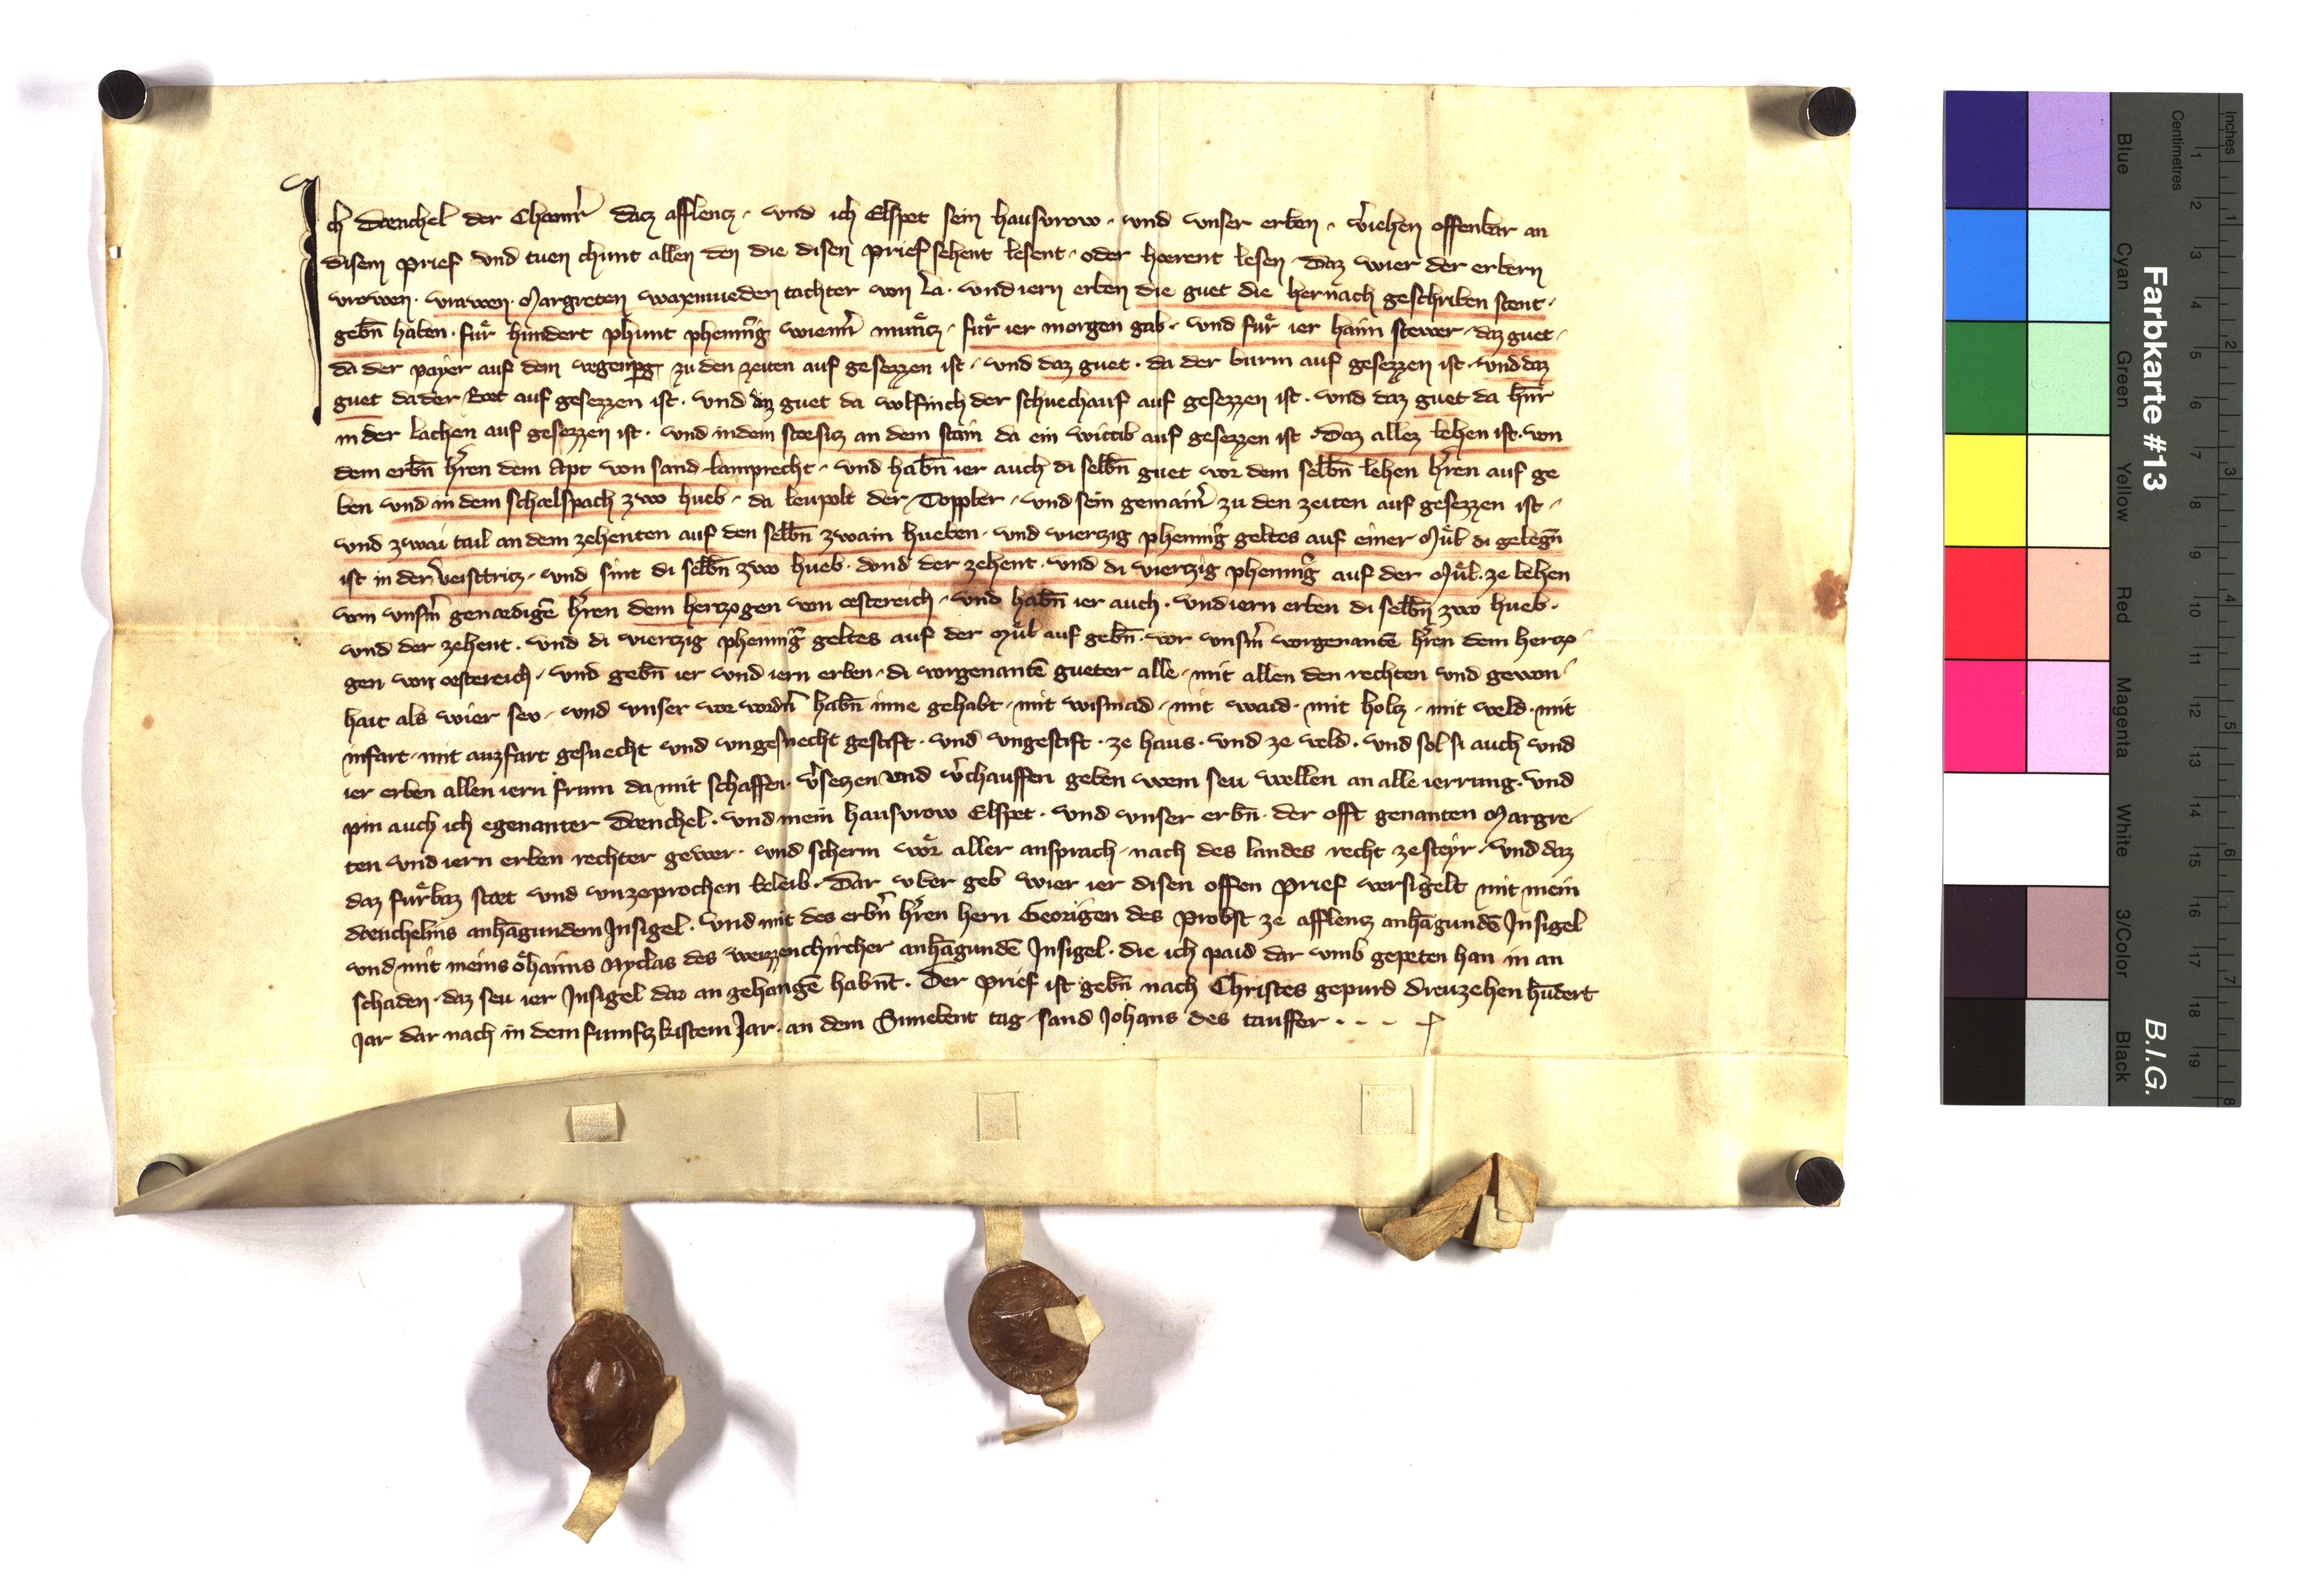 Ich Dænchel der Chamr̄ datz afflencz · und ich Elspet sein hausvrow · und unser erben · v̄iehen offenbar an
disem prief und tuen chunt allen den die disen prief sehent lesent · oder hœrent lesen · Daz wier der erbern
vrowen · vrawen · Margreten waxmueden tachter von La · und iern erben die guet die hernach geschriben stent ·
gebn̄ haben · fuͤr hundert phunt phenni̅g wienn̄ muͤncz · fuͤr ier morgen gab · und fuͤr ier haim stewer · daz guet ·
da der payer auf dem wegenpg zu den zeiten auf gesezzen ist · und daz guet · da der turm auf gesezzen ist · und daz
guet da der Rot auf gesezzen ist · und daz guet da wolfinch der schuechauf auf gesezzen ist · und daz guet da hn̄r
in der Lachen auf gesezzen ist · und in dem stœsicz an dem stain da ein wittib auf gesezzen ist · Daz allez lehen ist · von
dem erbn̄ hr̄en dem Apt von sand lamprecht · und habn̄ ier auch di selbn̄ guet vor dem selbn̄ lehen hr̄en auf ge
ben und in dem schælspach zwo hueb · da leupolt der Toppler · und sein gemain̄ zu den zeiten auf gesezzen ist ·
und zwai tail an dem zehenten auf den selbn̄ zwain hueben · und viertzig phenni̅g geltes auf einer Muͤl di gelegn̄
ist in der veistritz · und sint di selbn̄ zwo hueb · und der zehent · und di viertzig phenni̅g auf der Muͤl · ze lehen
von unsm̄ genœdigē hr̄en dem hertzogen von œstereich · und habn̄ ier auch · und iern erben di selbn̄ zwo hueb ·
und der zehent · und di viertzig phenni̅g geltes auf der Muͤl auf gebn̄ · vor unsm̄ vorgenantē hr̄en dem hertzo
gen von œstereich · und gebn̄ ier und iern erben · di vorgenantē gueter alle · mit allen den rechten und gewon
hait als wier seu · und unser vor vordn̄ habn̄ inne gehabt · mit wismad · mit waid · mit holtz · mit veld · mit
infart · mit auzfart gesuecht und ungesuecht gestift · und ungestift · ze haus · und ze veld · und sol si auch und
ier erben allen iern frum da mit schaffen · v̄seczen und v̄chauffen geben wem seu wellen an alle ierrung · und
pin auch ich egenanter Dænchel · und mein hausvrow Elspet · und unser erbn̄ · der offt genanten Margre
ten und iern erben rechter gewer · und scherm voͤr aller ansprach · nach des landes recht ze steyr · und daz
daz fuͤrbaz stæt und unzeprochen beleib · Dar uber geb wier ier disen offen prief versigelt mit mein
dænchelins anhāgundem Insigel · und mit des erbn̄ hr̄en hern Georigen des Probst ze afflentz anhāgundē Insigel
und mit meins oͤhaims Nyclas des weizzenchircher anhāgundē Insigel · die ich paid dar umb gepeten han in an
schaden · daz seu ier Insigel dar an gehangē habn̄t · Der prief ist gebn̄ nach Christes gepurd dreuzehen hūdert
Jar dar nach in dem fumftzkistem Jar · an dem Sunebent tag sand Johans des tauffer ·
Farbkarte #13
B.I.G.
Inches
Centimetres
1 2 3 4 5 6 7 8 9 10 11 12 13 14 15 16 17 18 19
1 2 3 4 5 6 7 8
Blue
Cyan
Green
Yellow
Red
Magenta
White
3/Color
Black